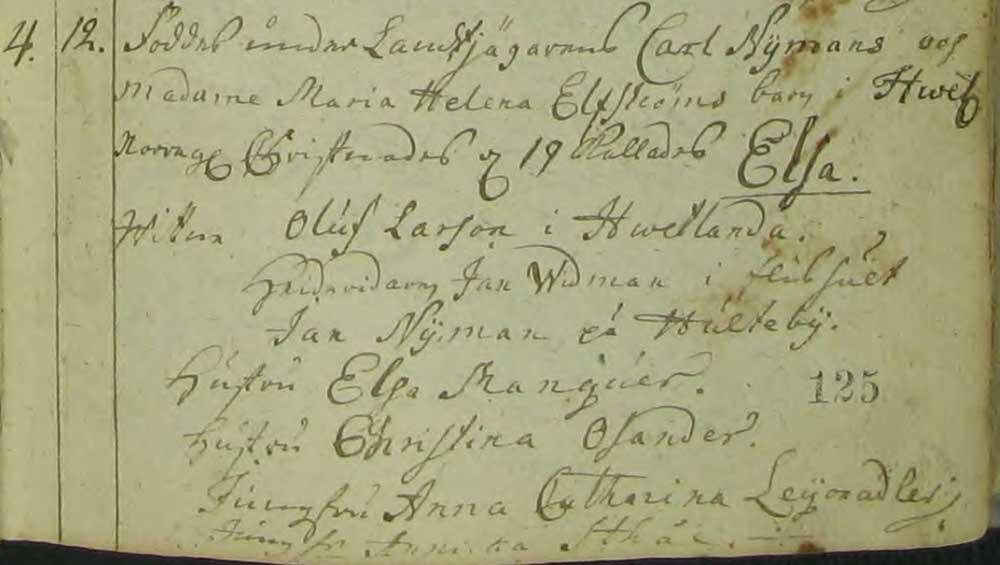 4. 12. Föddes under Landtjägarens Carl Nÿmans och
Madame Maria Helena Elfströms barn i Hwetl
Norrag Christnades 19 Kallades Elsa.
Witten Oluf Larson i Hwetlanda.
Jan Widman i
Jan Nÿman på Hulteby.
Hustru Elsa Manquer.
125
Hustru Christina Osander.
Jungfru Anna Catharina Leÿonadler
Annica